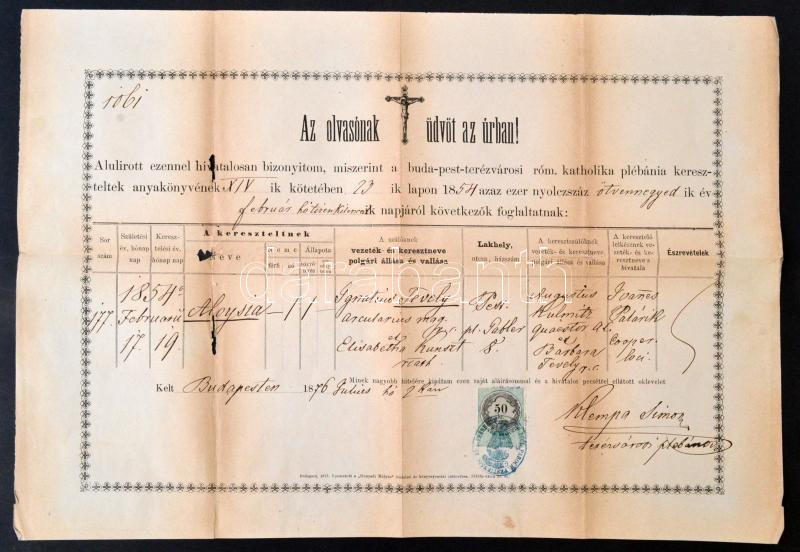 1061
Az olvasónak üdvöt az úrban!
Alulirott ezennel hivatalosan bizonyitom, miszerint a buda-pest-terézvárosi róm. katholika plébánia keresz-
teltek anyakönyvének XIV ik kötetében 23 ik lapon 1854 azaz ezer nyolczszáz ötvennegyed ik év
február hó ik napjáról következők foglaltatnak:
Sor szám
Születési év, hónap nap
Keresztelési év, hónap nap
A kereszteltnek
Neve
Neme
férfi nő
Állapota
A szülőknek
vezeték- és keresztneve
polgári állása és vallása
Lakhely,
utcza, házszám
A keresztszülőknek
vezeték- és keresztneve
polgári állása és vallása
A keresztelő lelkésznek vezeték- és keresztneve s hivatala
Észrevételek
177
1854
Februarii
17. 19.
Aloysia
Ignatius Tevely
arcularius mag.
et
Elisabetha
Pest
8.
Augustus
Kulmitz
quaestor
et
Barbara
Tevely r.c.
Joannes
Palárik
Cooper.
loci.
darabanth
Kelt Budapesten 1876 Julius hó 9
Minek nagyobb hitelére kiadtam ezen saját aláirásommal és a hivatalos pecséttel ellátott oklevelet
50
Klempa Simon
terézvárosi plebános